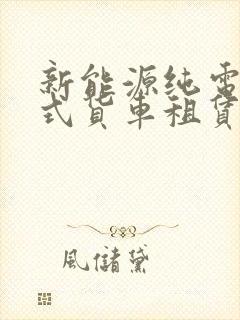 新能源纯電
式貨車租賃
風儲黛